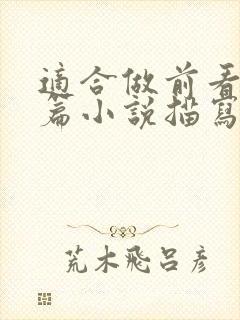 適合做前看
篇小說描寫
荒木飛呂彥